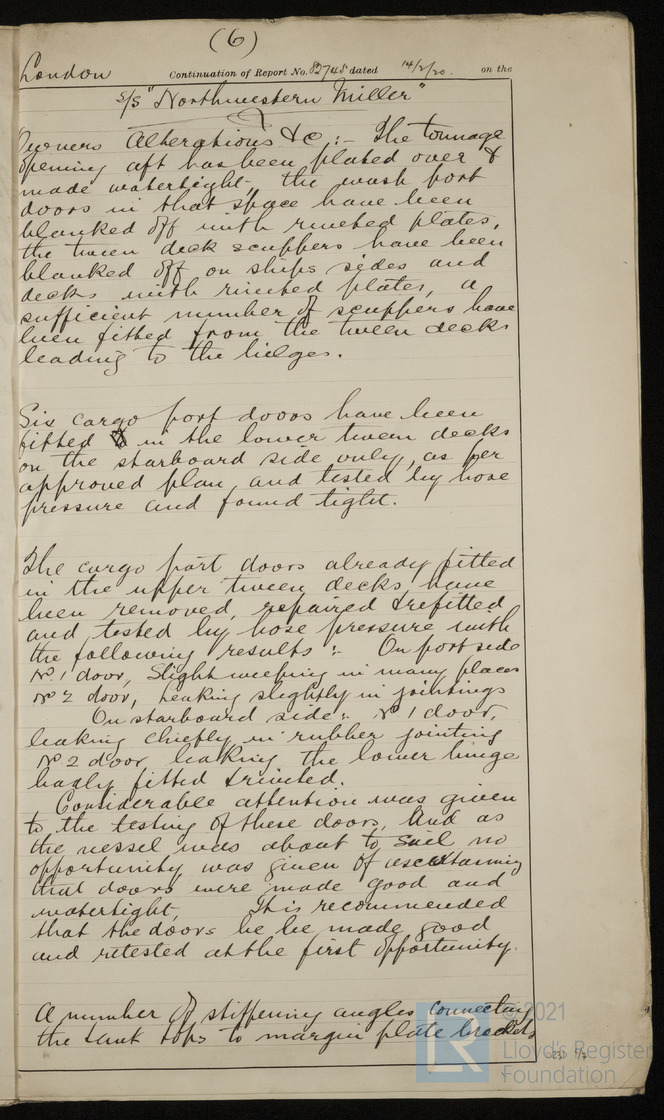 (6)
London Continuation of Report No. 82745 dated 14/2/20. on the
S/S "Northwestern Miller"
Owners Alterations &c :- The tonnage
opening aft has been plated over &
made watertight, the wash port
doors in that space have been
blanked off with riveted plates,
the tween deck scuppers have been
blanked off on ships sides and
decks with riveted plates, a
sufficient number of scuppers have
been fitted from the tween decks
leading to the bilges.
Six cargo port doors have been
fitted in the lower tween decks
on the starboard side only, as per
approved plan, and tested by hose
pressure and found tight.
The cargo port doors already fitted
in the upper tween decks, have
been removed, repaired & refitted
and tested by hose pressure with
the following results :- On port side
No. 1 door, Slight weeping in many places
No 2 door, Leaking slightly in jointings
On starboard side :- No 1 door,
leaking chiefly in rubber jointing
No 2 door leaking, the lower hinge
badly fitted & riveted.
Considerable attention was given
to the testing of these doors, and as
the vessel was about to sail no
opportunity was given of ascertaining
that doors were made good and
watertight, It is recommended
that the doors be be made good
and retested at the first opportunity.
A number of stiffening angles connecting
the tank tops to margin plate brackets
© 2021
LR
Lloyd's Register
Foundation